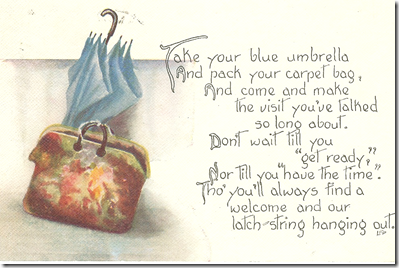 Take your blue umbrella
And pack your carpet bag,
And come and make
the visit you've talked
so long about.
Don't wait till you
"get ready,"
Nor till you "have the time".
Tho' you'll always find a
welcome and our
latch-string hanging out.